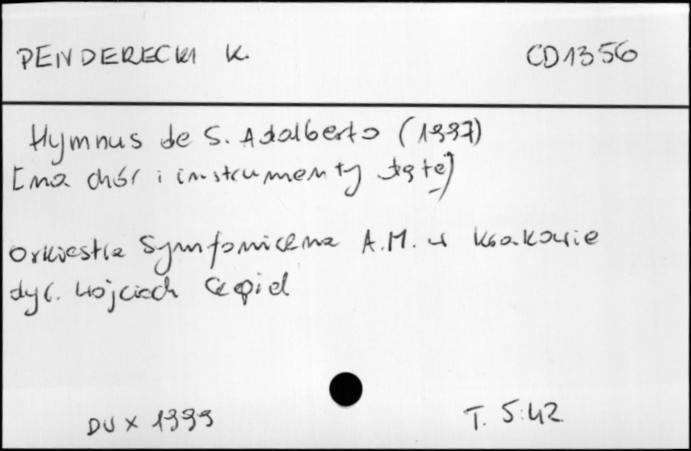 PENDERECKI K. CD 1356
Hymnus de S. Adalberto (1997)
[na chór i instrumenty dęte]
Orkiestra Symfoniczna A.M. w Krakowie
dyr. Wojciech Czepiel
DUX 1999 T. 5:42